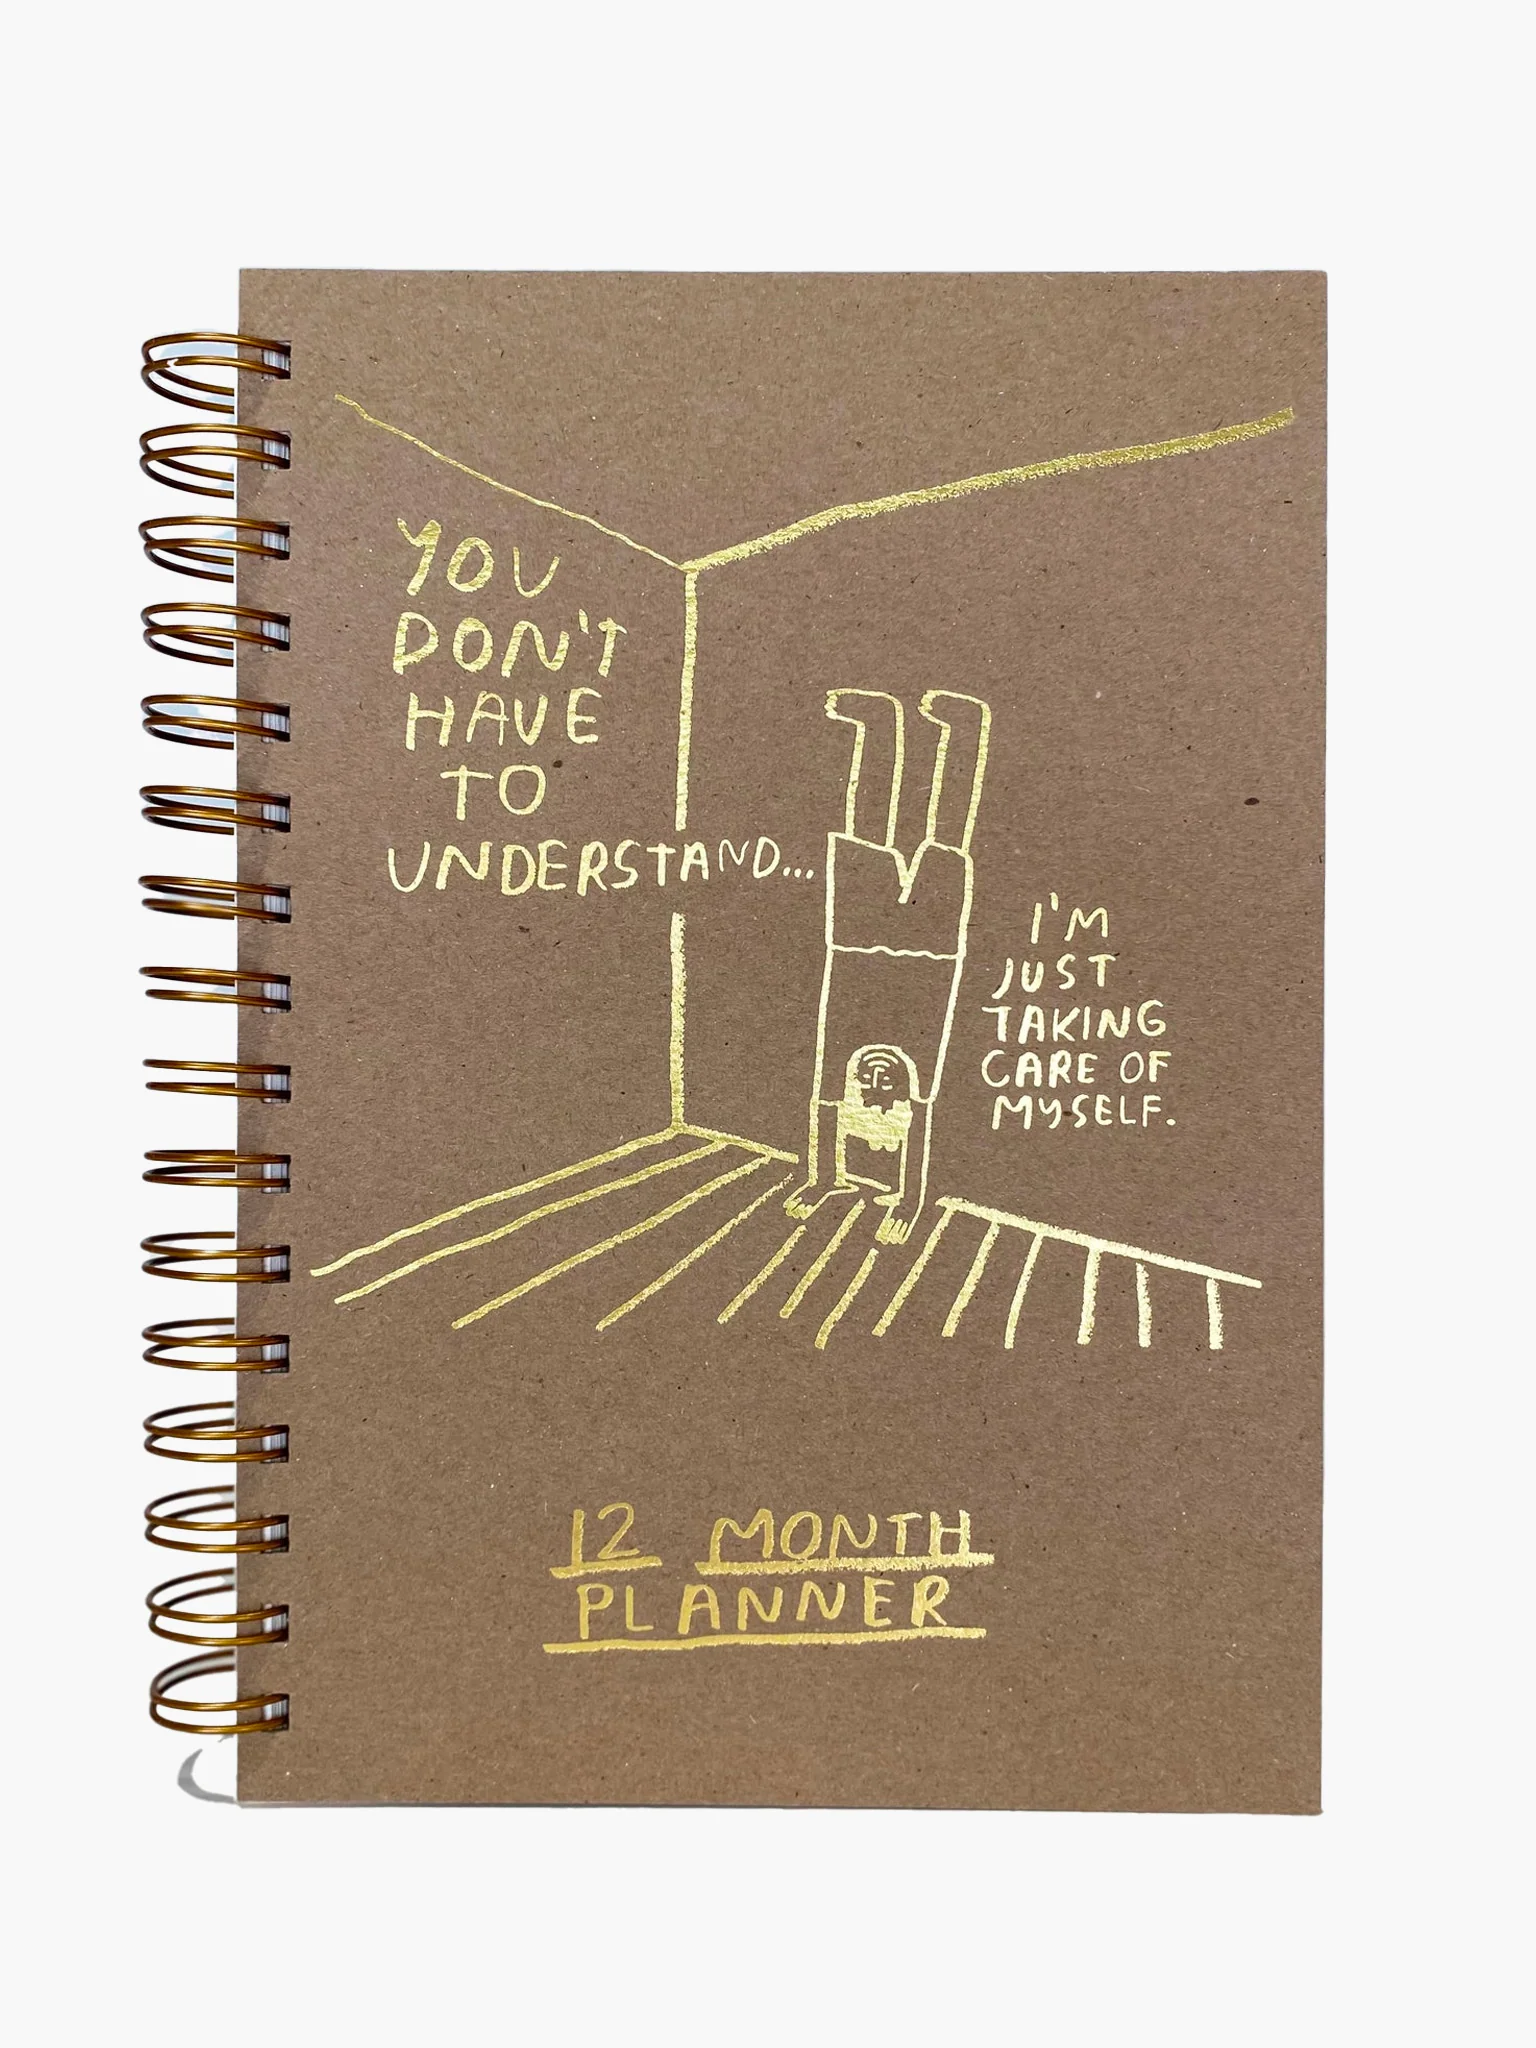 YOU
DON'T
HAVE
TO
UNDERSTAND...
I'M
JUST
TAKING
CARE OF
MYSELF.
12 MONTH
PLANNER